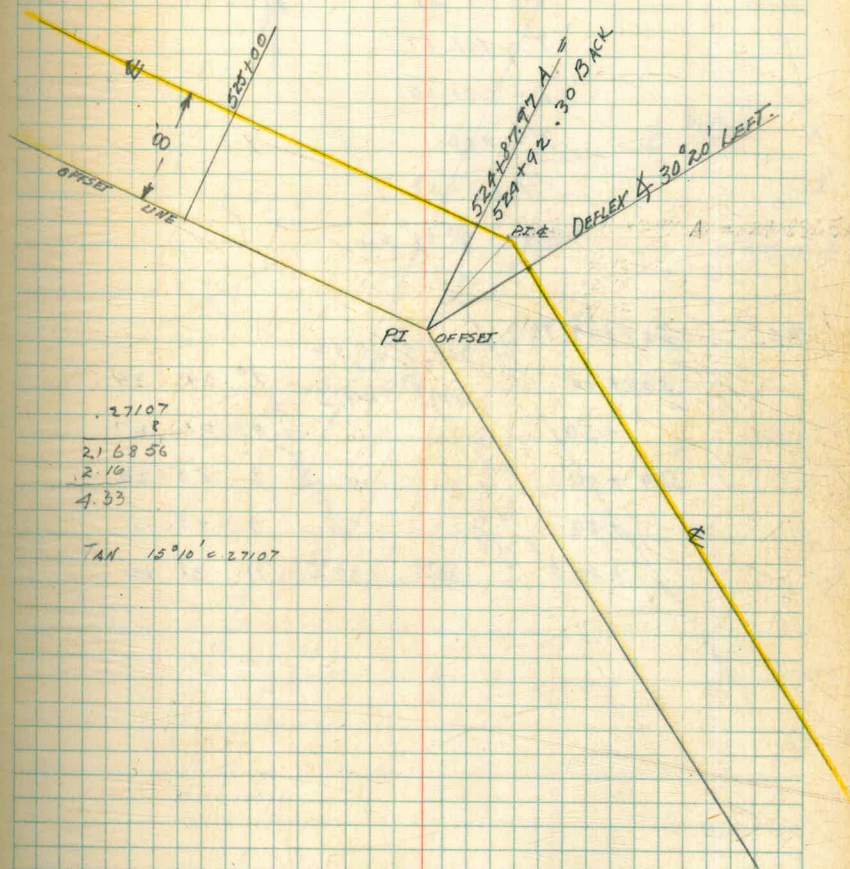 ℄
525+00
8'
OFFSET
LINE
524+87.97 A =
524+92.30 BACK
DEFLEX ∡ 30°20' LEFT.
P.I. ℄
P.I OFFSET
.27107
8
216856
2.16
4.33
TAN 15°10' = .27107
℄